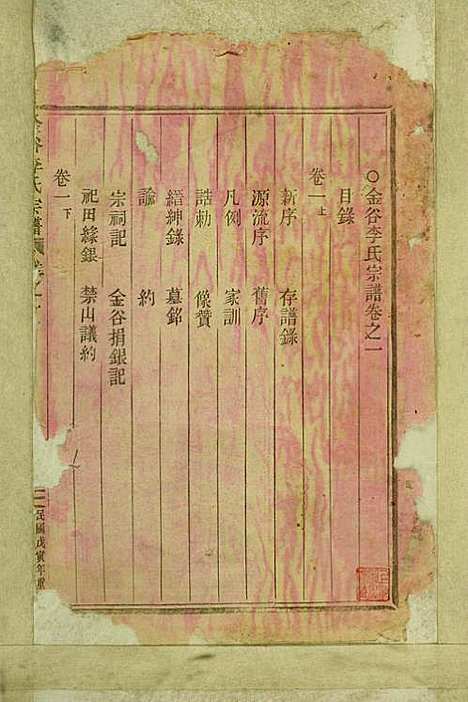 ○金谷李氏宗譜卷之一
目錄
卷一上
新序 存譜錄
源流序 舊序
凡例 家訓
誥勅 像贊
縉紳錄 墓銘
諭 約
宗祠記 金谷捐銀記
祀田緣銀 禁山議約
卷一下
谷李氏宗譜
卷之一
民國戊寅年重